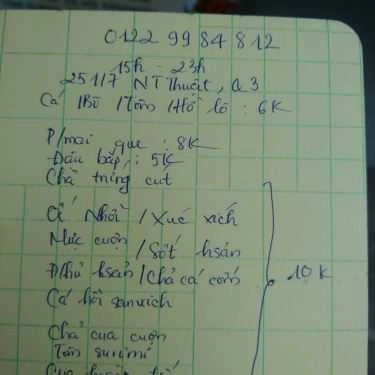 0122 99 84 812
15h - 23h
251/7 NTThuật, Q3
Cá /Bò /Tôm /Hồ lô : 6K
P/mai que : 8K
Đậu bắp : 5K
Chả trứng cút
Ốc Nhồi / Xúc xích
Mực cuộn
/ Sốt hsản
Đ/hủ hsản / Chả cá cốm
Cá hồi sanwich
10K
Chả cua cuộn
Tôm surimi
Cua